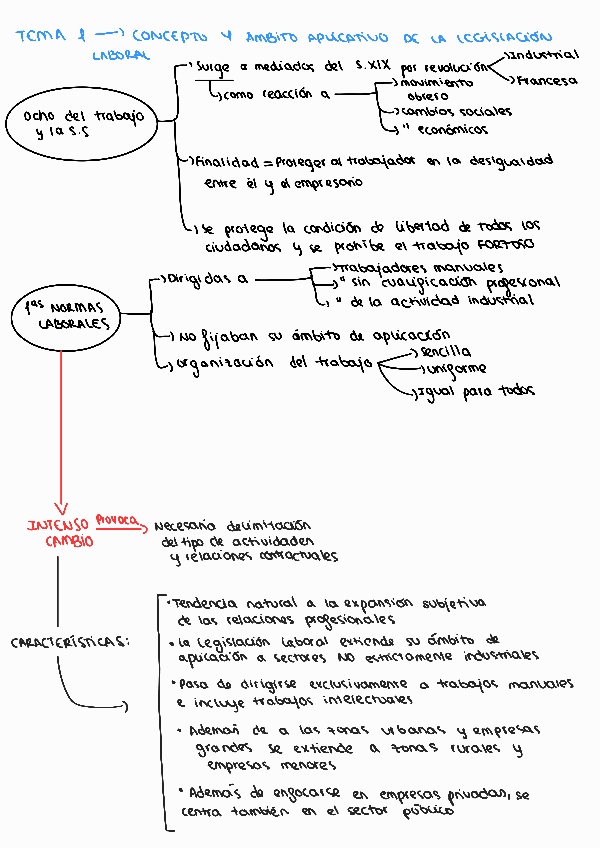 TEMA 1 → CONCEPTO Y ÁMBITO APLICATIVO DE LA LEGISLACIÓN
LABORAL
Dcho del trabajo
y la S.S
Surge a mediados del S.XIX por revolución
Industrial
Francesa
como reacción a
movimiento
obrero
cambios sociales
" económicos
Finalidad = Proteger al trabajador en la desigualdad
entre él y el empresario
Se protege la condición de libertad de todos los
ciudadanos y se prohíbe el trabajo FORZOSO
1as NORMAS
LABORALES
Dirigidas a
trabajadores manuales
" sin cualificación profesional
" de la actividad industrial
NO fijaban su ámbito de aplicación
organización del trabajo
sencilla
uniforme
Igual para todos
INTENSO
CAMBIO
Provoca
Necesaria delimitación
del tipo de actividades
y relaciones contractuales
CARACTERÍSTICAS:
• Tendencia natural a la expansión subjetiva
de las relaciones profesionales
• La Legislación Laboral extiende su ámbito de
aplicación a sectores NO estrictamente industriales
• Pasa de dirigirse exclusivamente a trabajos manuales
e incluye trabajos intelectuales
• Además de a las zonas urbanas y empresas
grandes se extiende a zonas rurales y
empresas menores
• Además de enfocarse en empresas privadas, se
centra también en el sector público